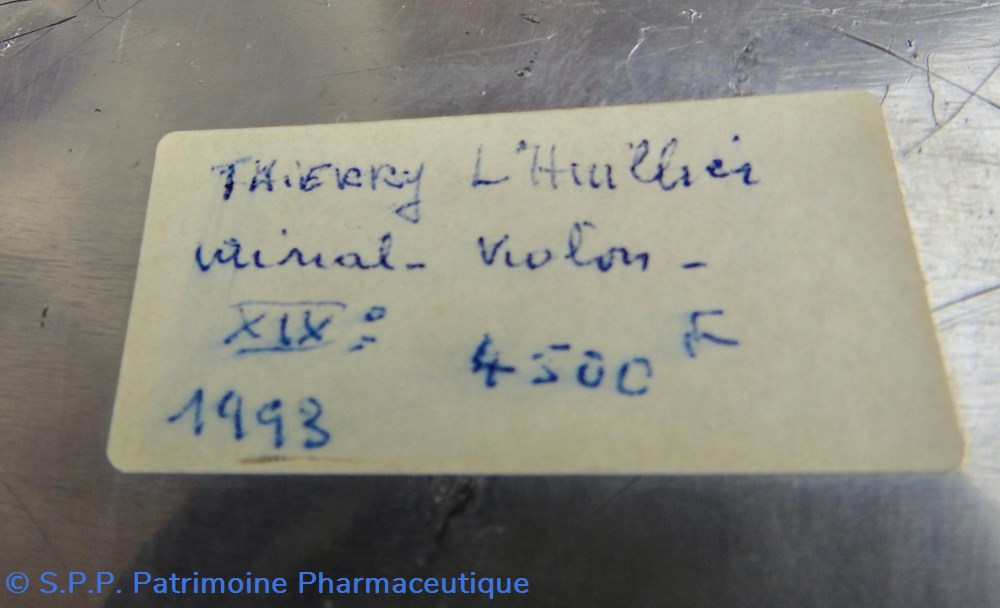 THIERRY L'Huillier
urinal - Violon -
XIXe
4500 F
1993
© S.P.P. Patrimoine Pharmaceutique